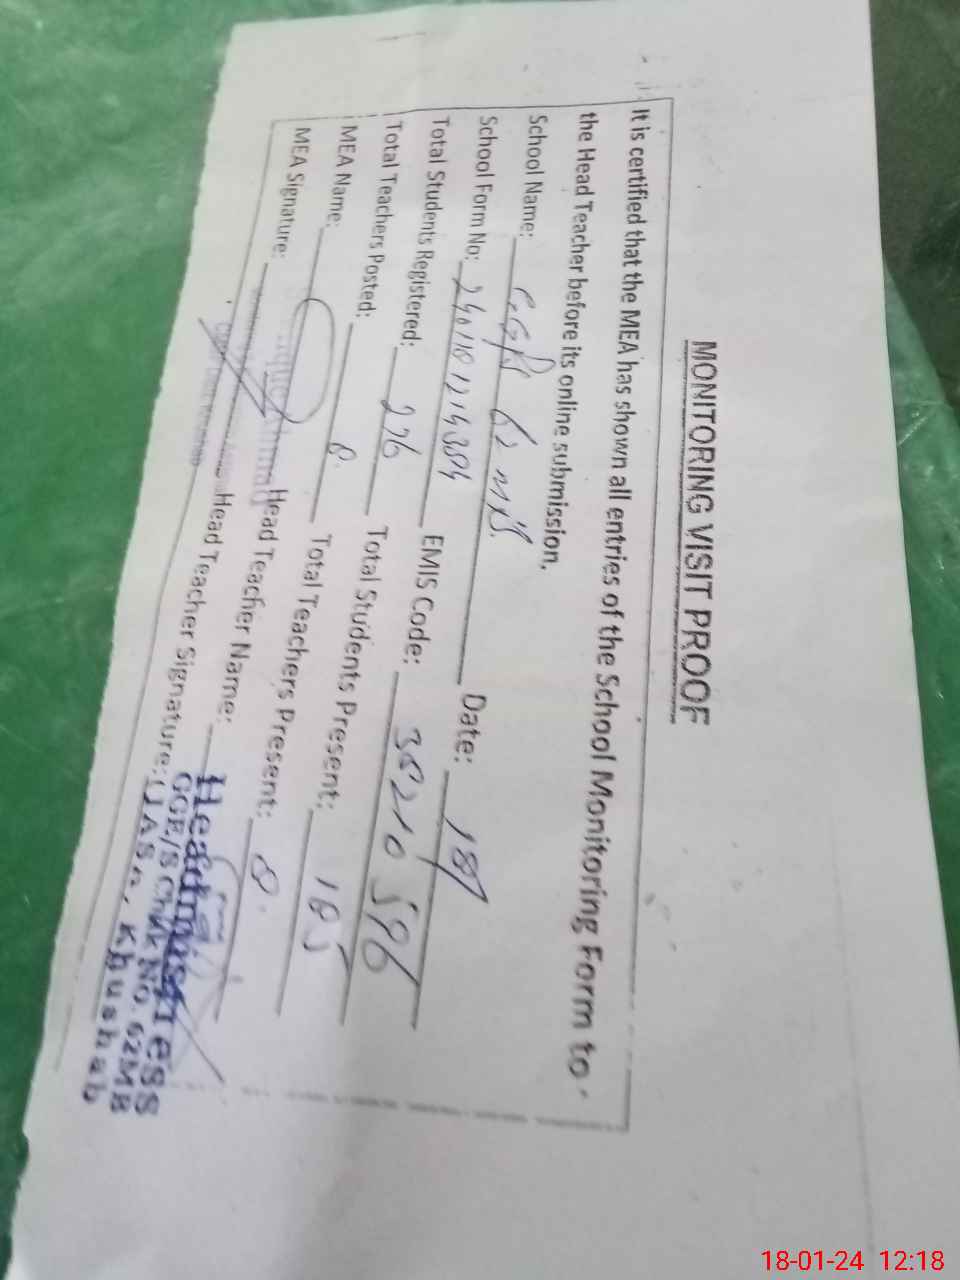 MONITORING VISIT PROOF
It is certified that the MEA has shown all entries of the School Monitoring Form to
the Head Teacher before its online submission.
School Name: 62 Date: 18/
School Form No: EMIS Code: 38210596
Total Students Registered: 226 Total Students Present: 185
Total Teachers Posted: 8 Total Teachers Present: 8
MEA Name: Head Teacher Name:
MEA Signature: Head Teacher Signature:
Headmistress
GGE/S Chak No. 62MB
Khushab
18-01-24 12:18